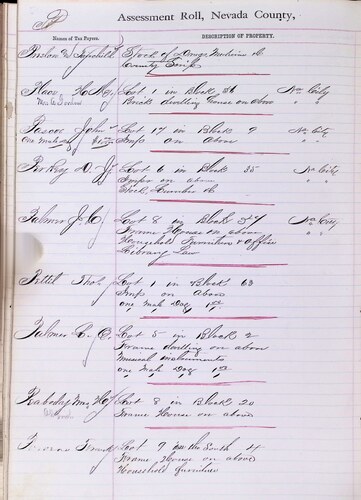 Assessment Roll, Nevada County,
Names of Tax Payers.
DESCRIPTION OF PROPERTY.
Stock of Drugs Medicine &c
County Scrip
Lot 1 in Block 36 Nv City
Brick dwelling house on above " "
Pascoe John Lot 17 in Block 9 Nv City
One male Imps on above " "
Lot 6 in Block 35 Nv City
Imps on above
Stock Lumber &c
Palmer J. C. Lot 8 in Block Nv City
Frame House on above " "
Household Furniture & Office
Library Law
Pettit Thos Lot 1 in Block 63
Imps on Above
one male Dog 1
Palmer C. C. Lot 5 in Block 2
Frame dwelling on above
Musical instruments
one male Dog 1
Mrs Lot 8 in Block 20
Frame House on above
Frank Lot 7 in the South
Frame House on above
Household furniture